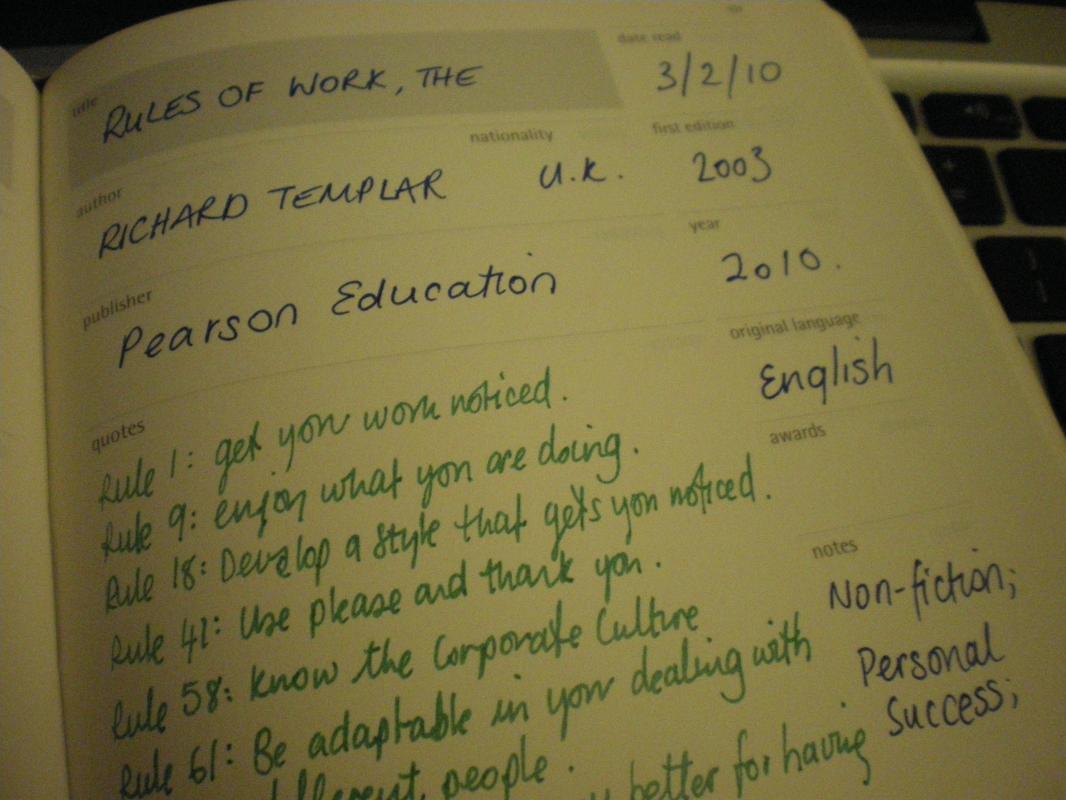 title
RULES OF WORK, THE
date read
3/2/10
author
RICHARD TEMPLAR
nationality
U.K.
first edition
2003
publisher
Pearson Education
year
2010.
original language
English
quotes
Rule 1: get your work noticed.
Rule 9: enjoy what you are doing.
Rule 18: Develop a style that gets you noticed.
Rule 41: Use please and thank you.
Rule 58: Know the Corporate Culture
Rule 61: Be adaptable in your dealing with
different people.
better for having
awards
notes
Non-fiction;
Personal
Success;